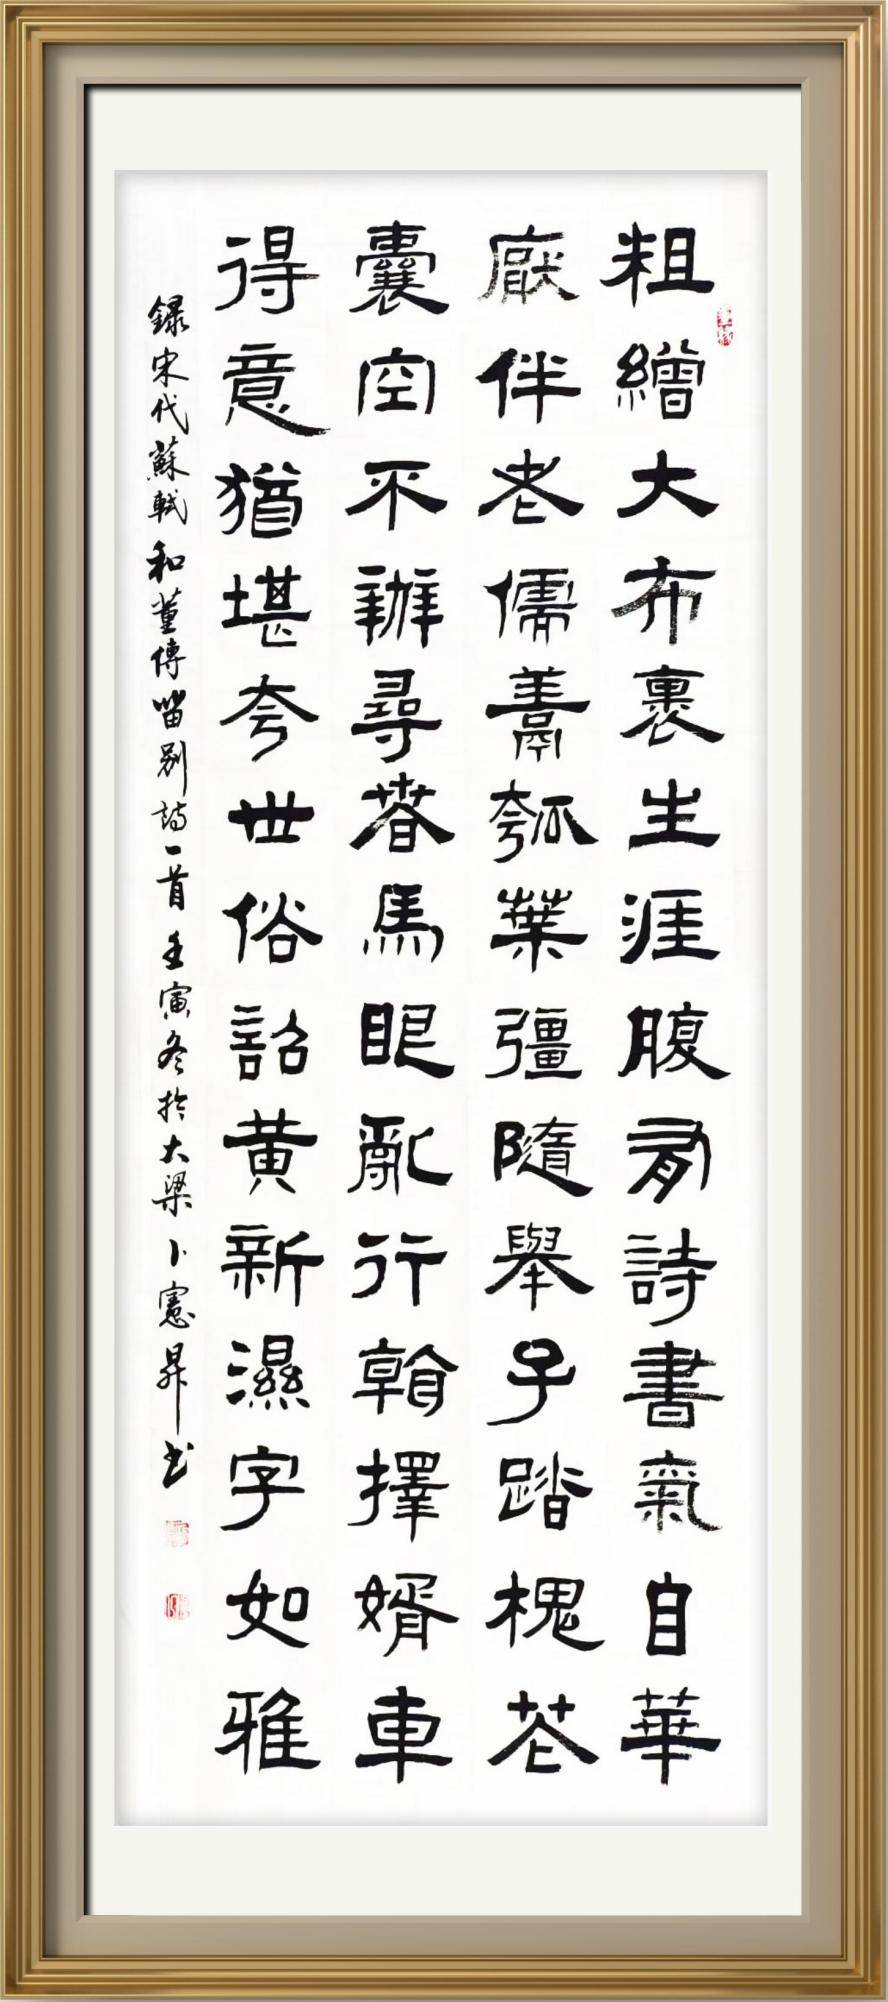 粗繒大布裹生涯腹有詩書氣自華
厭伴老儒鬻瓠葉彊隨舉子踏槐花
囊空不辦尋春馬眼亂行翰擇婿車
得意猶堪夸世俗詔黄新濕字如雅
録宋代蘇軾和董傳留别詩一首壬寅冬於大梁卜憲昇书